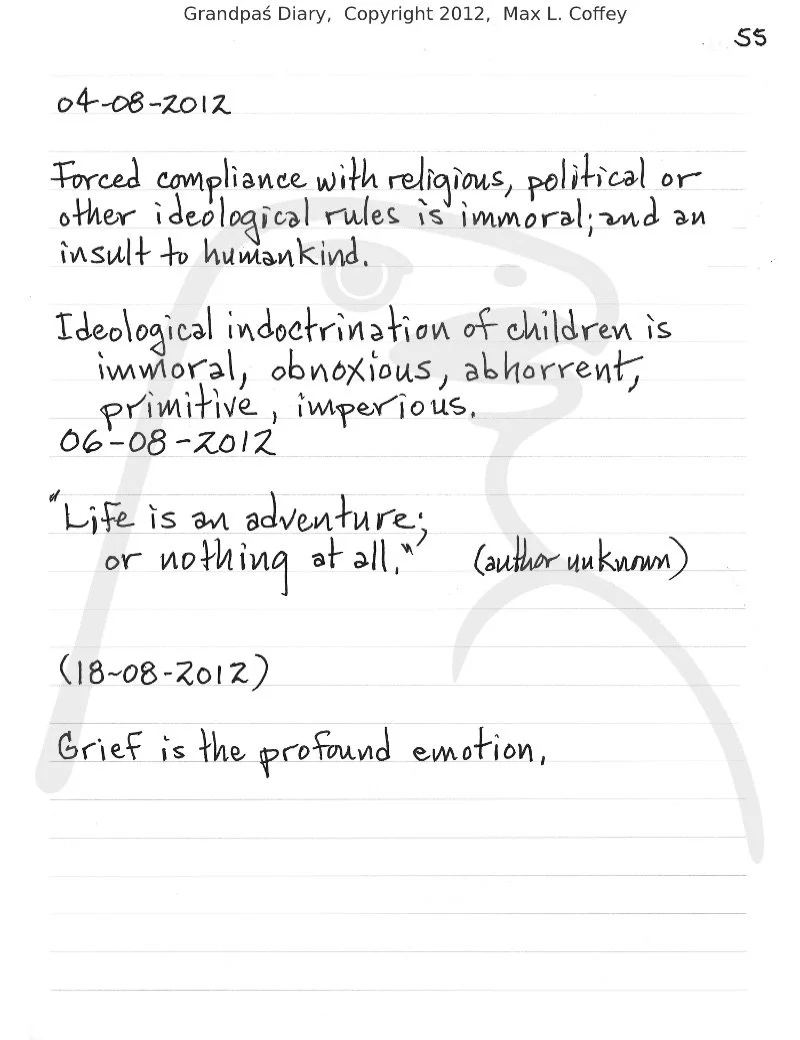 Grandpaś Diary, Copyright 2012, Max L. Coffey
55
04-08-2012
Forced compliance with religious, political or
other ideological rules is immoral; and an
insult to humankind.
Ideological indoctrination of children is
immoral, obnoxious, abhorrent,
primitive, imperious.
06-08-2012
"Life is an adventure;
or nothing at all." (author unknown)
(18-08-2012)
Grief is the profound emotion,